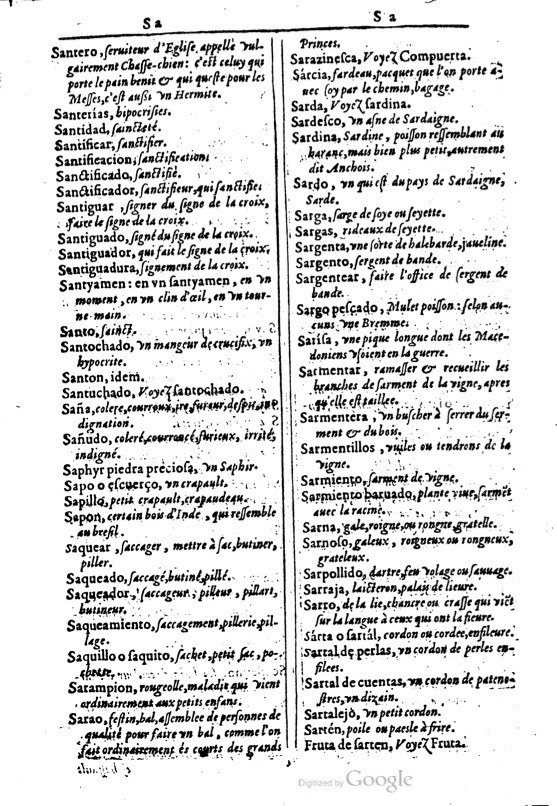 Sa
Santero, ſeruiteur d'Egliſe appellé vul-
gairement Chaſſe-chien: c'eſt celuy qui
porte le pain benit & qui queſte pour les
Meſſes, c'eſt auſsi vn Hermite.
Santerías, hipocriſies.
Santidad, ſaincteté.
Santificar, ſanctifier.
Santificacion, ſanctification.
Sanctificado, ſanctifié.
Sanctificador, ſanctifieur, qui ſanctifie.
Santiguar, ſigner du ſigne de la croix,
faire le ſigne de la croix.
Santiguado, ſigné du ſigne de la croix.
Santiguador, qui fait le ſigne de la croix.
Santiguadura, ſignement de la croix.
Santyamen: en vn ſantyamen, en vn
moment, en vn clin d'œil, en vn tour-
ne-main.
Santo, ſainct.
Santochado, vn mangeur de crucifix, vn
hypocrite.
Santon, idem.
Santuchado, Voyez ſantochado.
Saña, colere, courroux, ire, fureur, deſpit, ine
dignation.
Sañudo, coleré, courroncé, furieux, irrité,
indigné.
Saphyr piedra précioſa, vn Saphir.
Sapo o eſcuerço, vn crapault.
Sapillo, petit crapault, crapaudeau.
Sapon, certain bois d'Inde, qui reſſemble
au breſil.
Saquear, ſaccager, mettre à ſac, butiner,
piller.
Saqueado, ſaccagé, butiné, pillé.
Saqueador, ſaccageur, pilleur, pillart,
butineur.
Saqueamiento, ſaccagement, pillerie, pil-
lage.
Saquillo o ſaquito, ſachet, petit ſac, po-
chette.
Sarampion, rougeolle, maladie qui vient
ordinairement aux petits enfans.
Sarao, feſtin, bal, aſſemblee de perſonnes de
qualité pour faire vn bal, comme l'on
fait ordinairement és courts des grands
Sa
Princes.
Sarazineſca, Voyez Compuerta.
Sárcia, fardeau, pacquet que l'on porte a-
uec ſoy par le chemin, bagage.
Sarda, Voyez ſardina.
Sardeſco, vn aſne de Sardaigne.
Sardina, Sardine, poiſſon reſſemblant au
haranc, mais bien plus petit, autrement
dit Anchois.
Sardo, vn qui eſt du pays de Sardaigne,
Sarde.
Sarga, ſarge de ſoye ou ſeyette.
Sargas, rideaux de ſeyette.
Sargenta, vne ſorte de halebarde, jaueline.
Sargento, ſergent de bande.
Sargentear, faire l'office de ſergent de
bande.
Sargo peſcado, Mulet poiſſon: ſelon au-
cuns vne Bremme.
Sariſa, vne pique longue dont les Mace-
doniens vſoient en la guerre.
Sarmentar, ramaſſer & recueillir les
branches de ſarment de la vigne, apres
qu'elle eſt taillee.
Sarmentera, vn buſcher à ſerrer du ſer-
ment & du bois.
Sarmentillos, vuiles ou tendrons de la
vigne.
Sarmiento, ſarment de vigne.
Sarmiento baruado, plante viue, ſarmẽt
auec la racine.
Sarna, gale, roigne, ou rongne, gratelle.
Sarnoſo, galeux, roigneux ou rongneux,
grateleux.
Sarpollido, dartre, feu volage ou ſauuage.
Sarraja, laicteron, palais de lieure.
Sarro, de la lie, chancre ou craſſe qui viẽt
ſur la langue à ceux qui ont la fieure.
Sárta o ſartál, cordon ou cordee, enfileure.
Sartal de perlas, vn cordon de perles en-
filees.
Sartal de cuentas, vn cordon de pateno-
ſtres, vn dizain.
Sartalejo, vn petit cordon.
Sartén, poile ou paesle à frire.
Fruta de ſarten, Voyez Fruta.
Digitized by Google